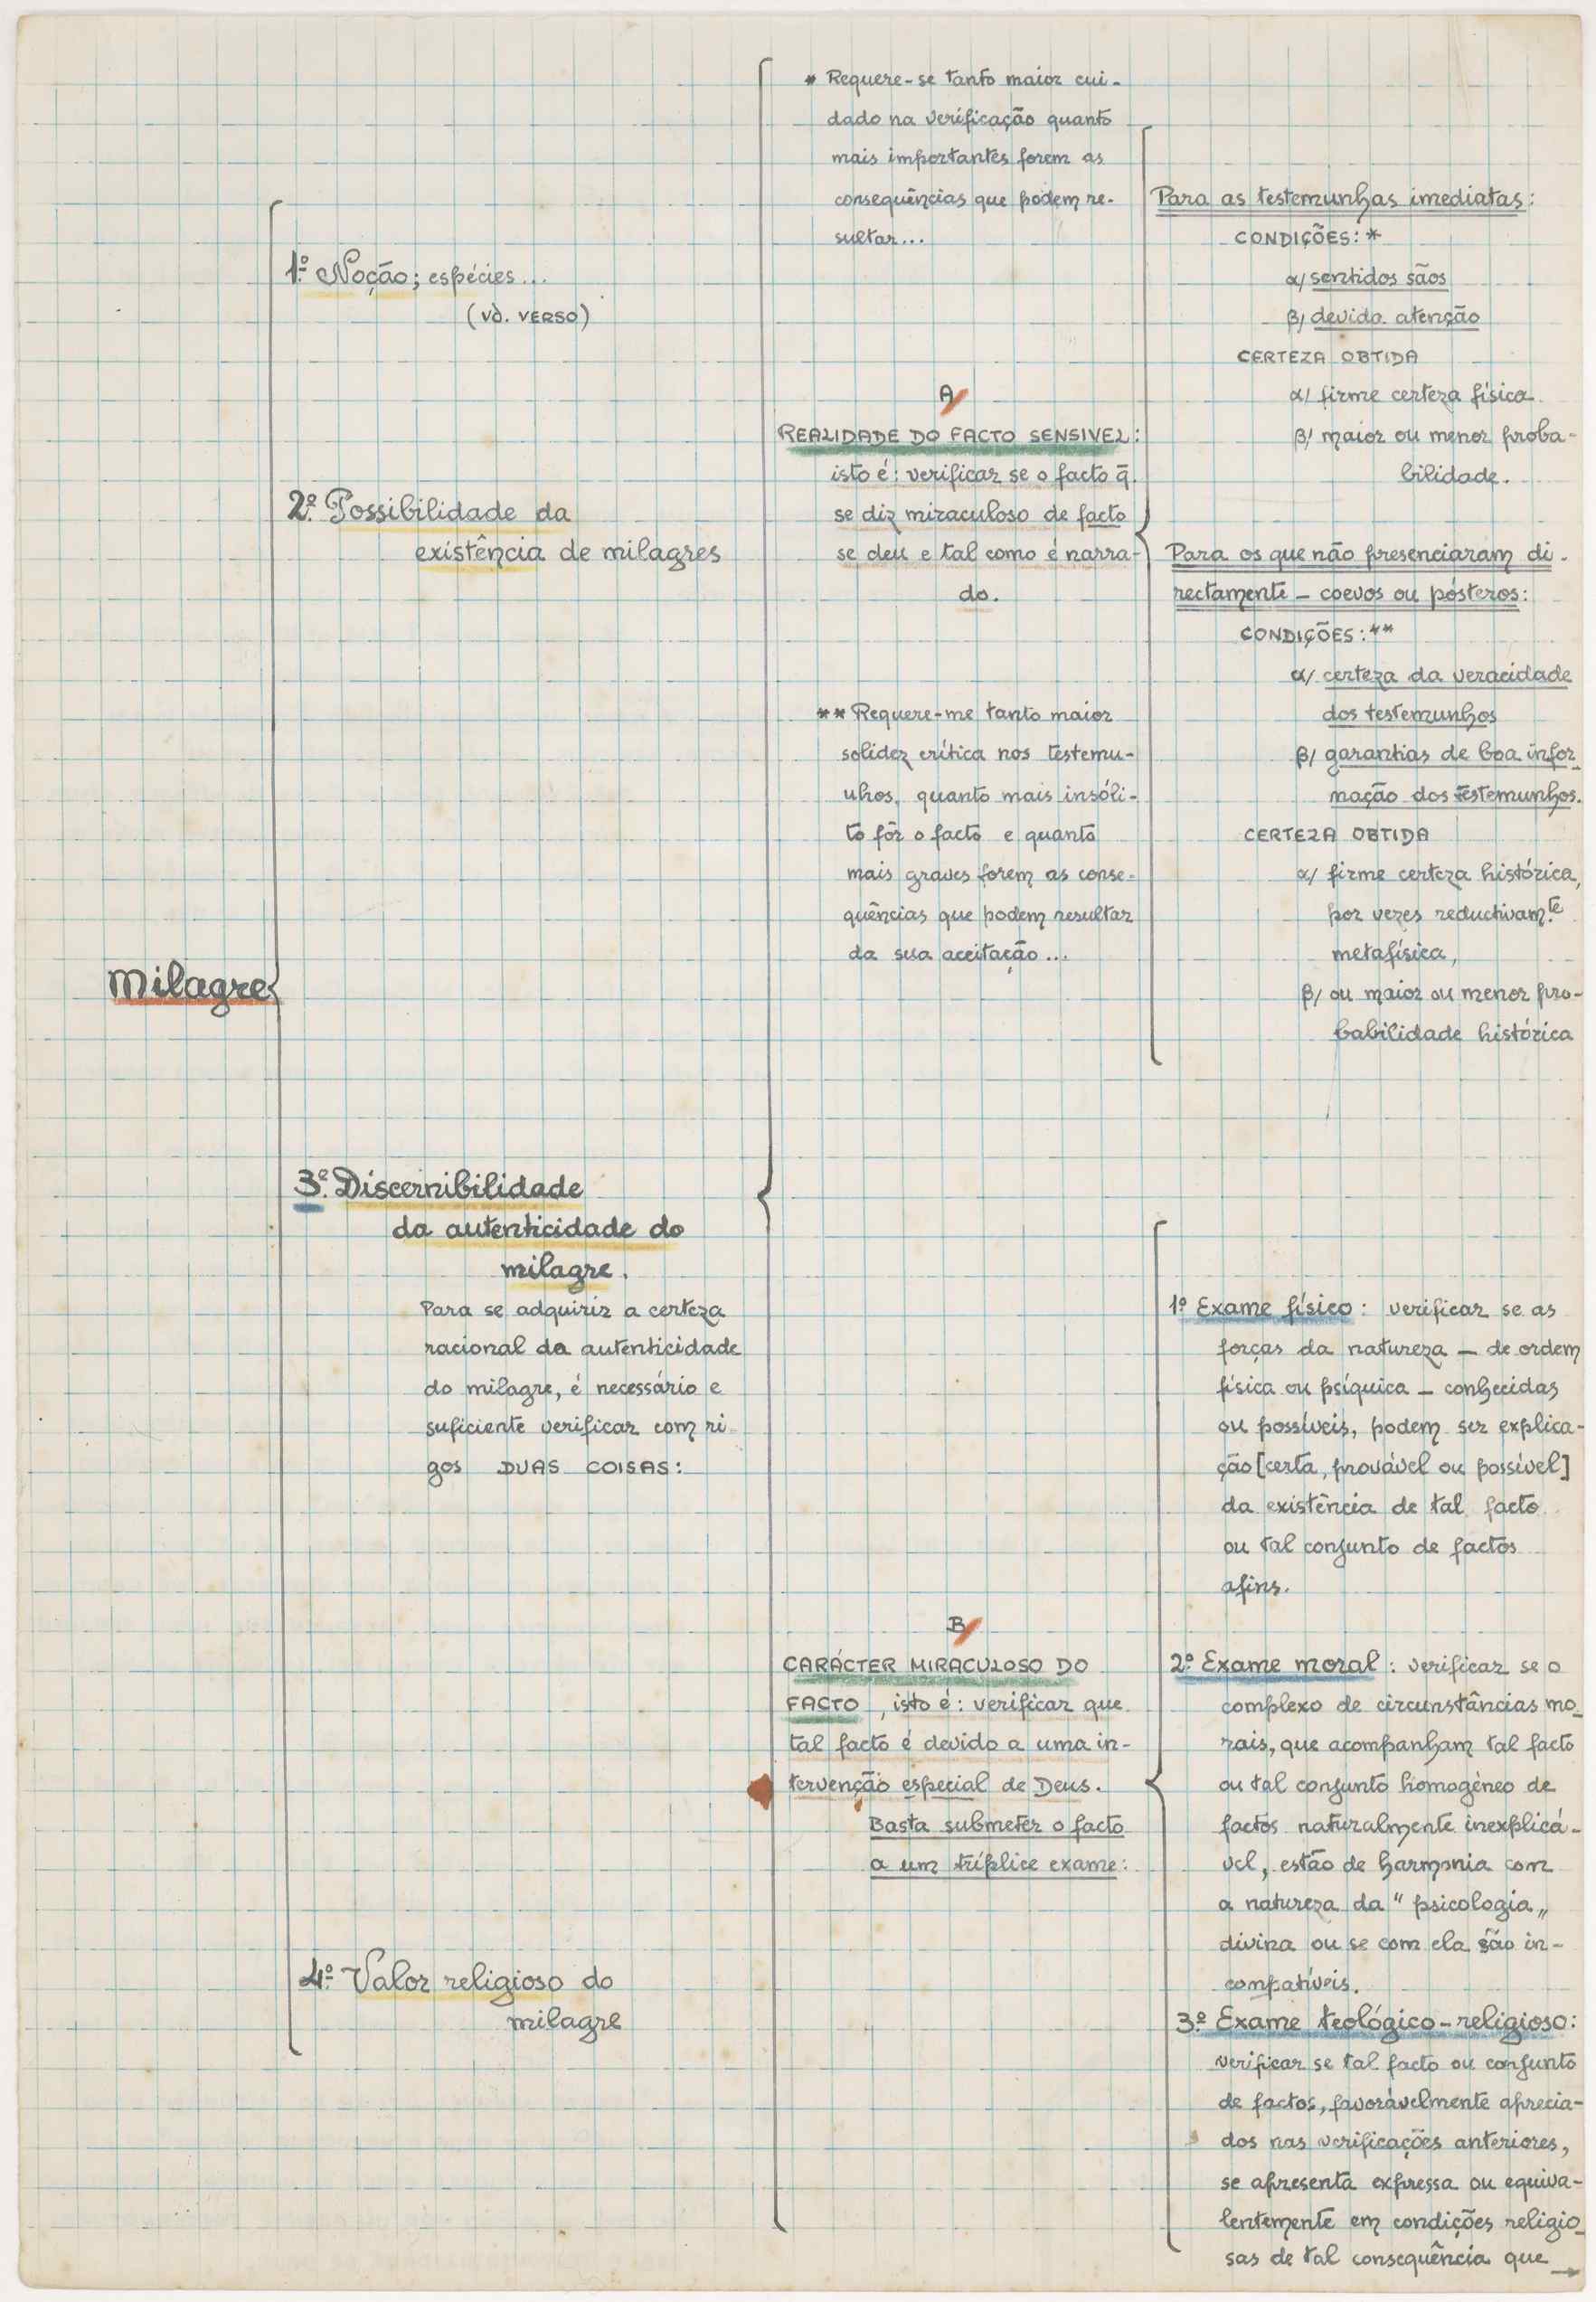 Milagre
1º. Noção; espécies...
(vd. VERSO)
2º. Possibilidade da
existência de milagres
3º. Discernibilidade
da autenticidade do
milagre.
Para se adquirir a certeza
racional da autenticidade
do milagre, é necessário e
suficiente verificar com ri-
gos DUAS COISAS:
4º. Valor religioso do
milagre
* Requere-se tanto maior cui-
dado na verificação quanto
mais importantes forem as
consequências que podem re-
sultar...
A/
REALIDADE DO FACTO SENSIVEL:
isto é: verificar se o facto q̄.
se diz miraculoso de facto
se deu e tal como é narra-
do.
** Requere-me tanto maior
solidez crítica nos testemu-
nhos, quanto mais insóli-
to fôr o facto e quanto
mais graves forem as conse-
quências que podem resultar
da sua aceitação...
Para as testemunhas imediatas:
CONDIÇÕES: *
α/ sentidos sãos
β/ devida atenção
CERTEZA OBTIDA
α/ firme certeza física
β/ maior ou menor proba-
bilidade.
Para os que não presenciaram di-
rectamente – coevos ou pósteros:
CONDIÇÕES: **
α/ certeza da veracidade
dos testemunhos
β/ garantias de boa infor-
mação dos testemunhos.
CERTEZA OBTIDA
α/ firme certeza histórica,
por vezes reductivam.te
metafísica,
β/ ou maior ou menor pro-
babilidade histórica
B/
CARÁCTER MIRACULOSO DO
FACTO, isto é: verificar que
tal facto é devido a uma in-
tervenção especial de Deus.
Basta submeter o facto
a um tríplice exame:
1º Exame físico: verificar se as
forças da natureza – de ordem
física ou psíquica – conhecidas
ou possíveis, podem ser explica-
ção [certa, provável ou possível]
da existência de tal facto
ou tal conjunto de factos
afins.
2º. Exame moral: verificar se o
complexo de circunstâncias mo-
rais, que acompanham tal facto
ou tal conjunto homogéneo de
factos naturalmente inexplicá-
vel, estão de harmonia com
a natureza da "psicologia„
divina ou se com ela são in-
compatíveis.
3º. Exame teológico-religioso:
verificar se tal facto ou conjunto
de factos, favoràvelmente aprecia-
dos nas verificações anteriores,
se apresenta expressa ou equiva-
lentemente em condições religio-
sas de tal consequência que →